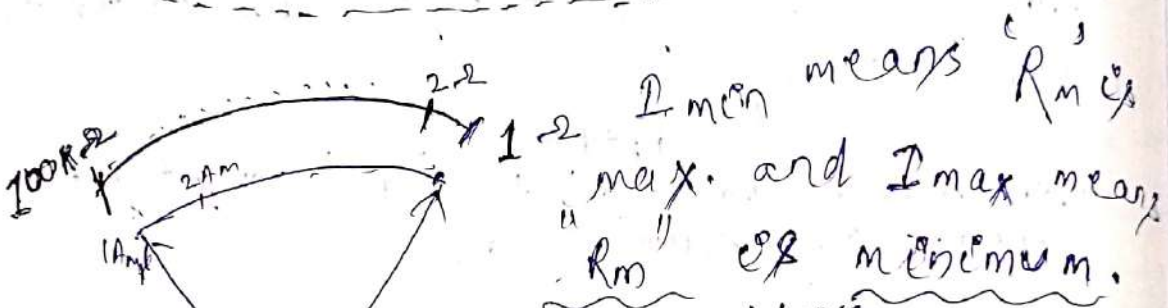 2Ω
100KΩ
1Ω
2Am
1Amp
I min means 'Rm' is
max. and I max means
"Rm" is minimum.